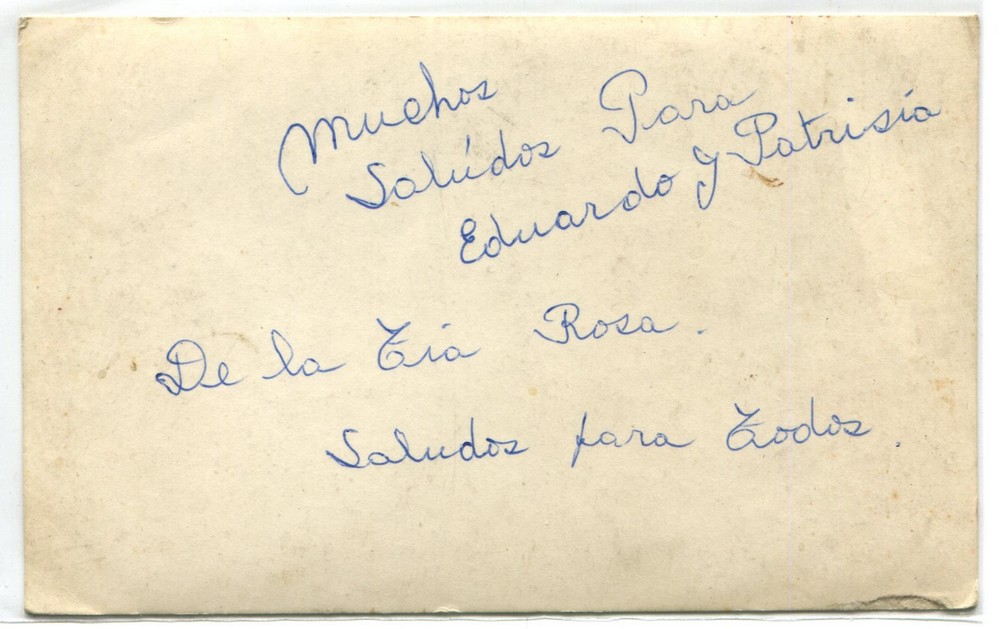 Muchos
Salúdos Para
Eduardo y Patrisía
De la Tia Rosa.
Saludos para Todos.